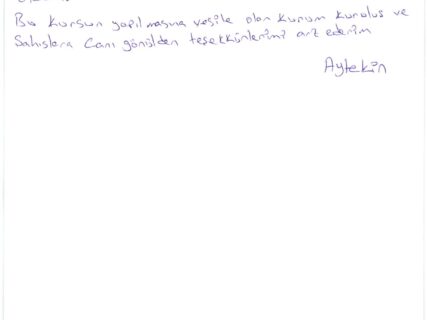 Bu kursun yapılmasına vesile olan kurum kuruluş ve
Şahıslara Canı gönülden teşekkürlerimi arz ederim
Aytekin